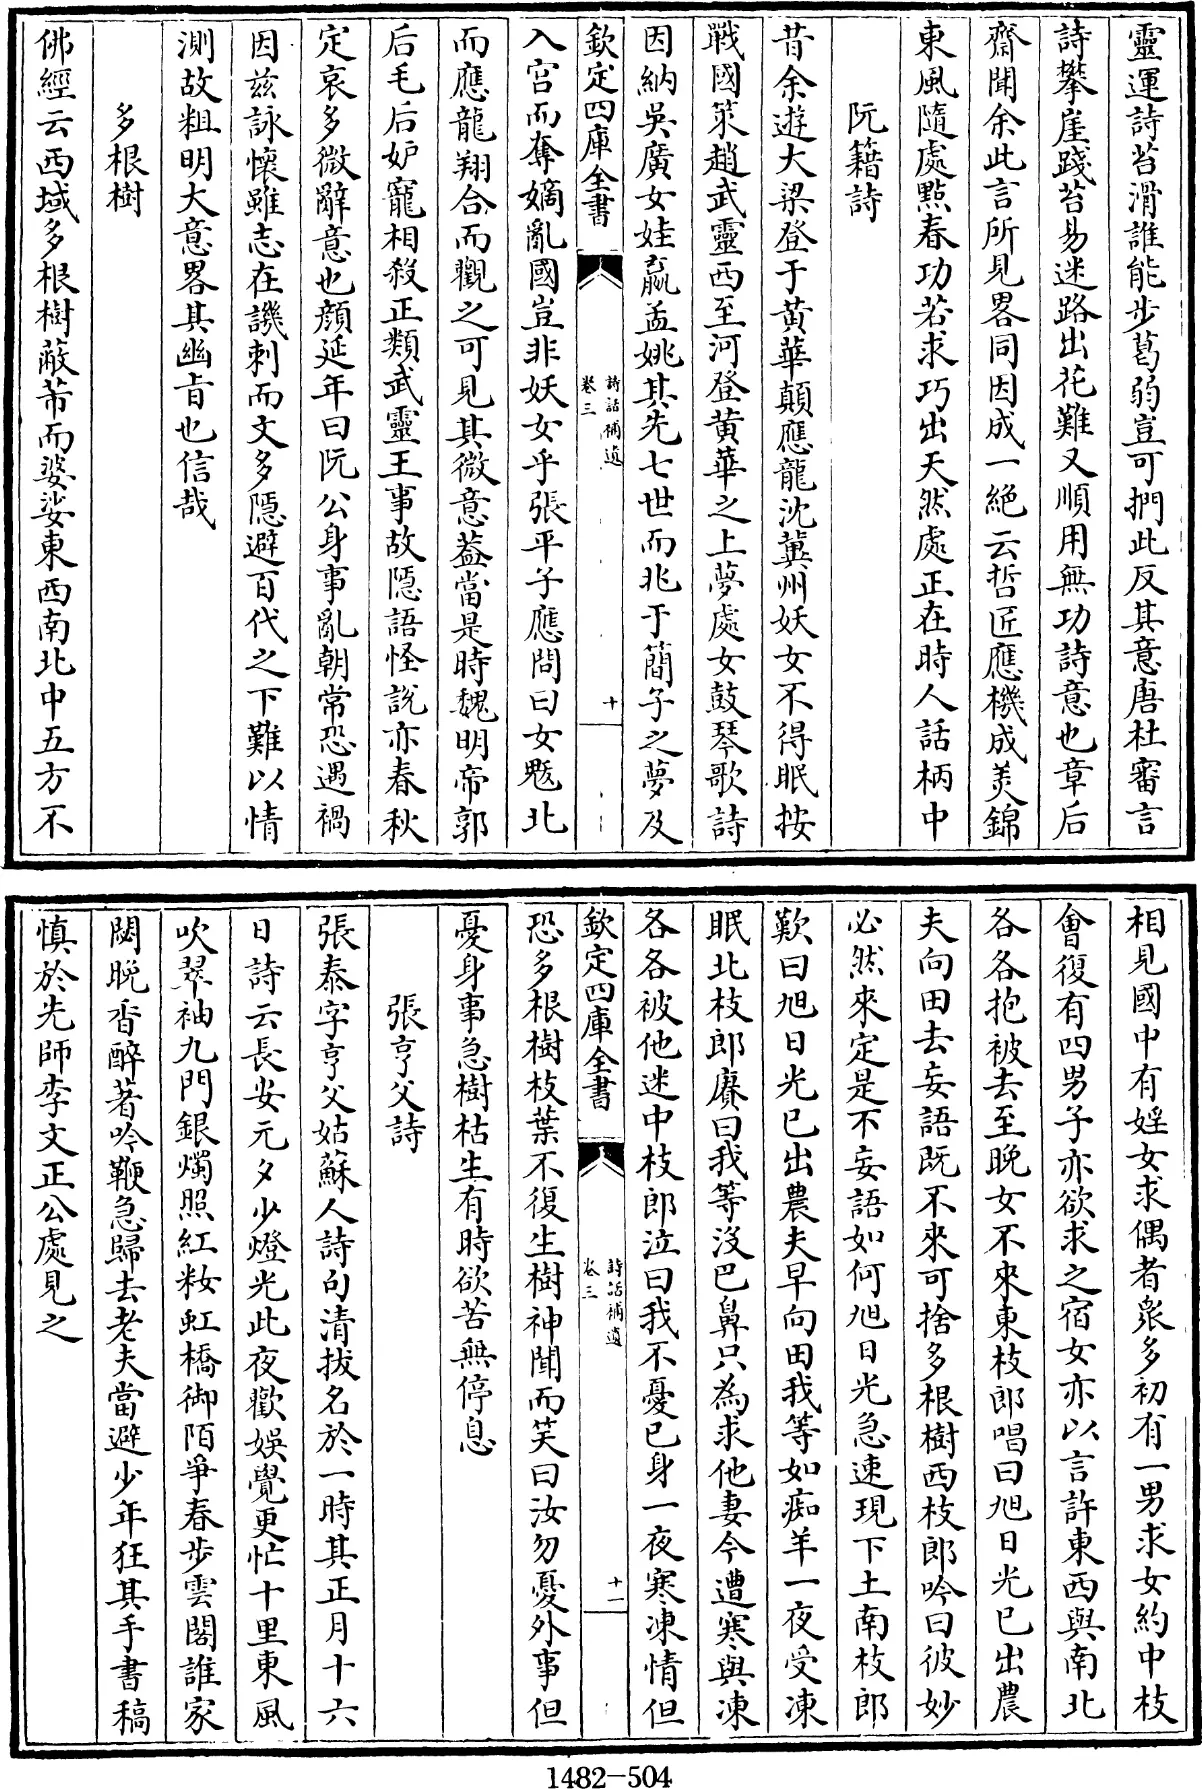 靈運詩苔滑誰能步葛弱豈可捫此反其意唐杜審言
詩攀崖踐苔易迷路出花難又順用無功詩意也章后
齋聞余此言所見畧同因成一絕云哲匠應機成美錦
東風隨處點春功若求巧出天然處正在時人話柄中
阮籍詩
昔余遊大梁登于黄華顛應龍沈冀州妖女不得眠按
戰國策趙武靈西至河登黄華之上夢處女鼓琴歌詩
因納吳廣女娃嬴孟姚其先七世而兆于簡子之夢及
欽定四庫全書
詩話補遺
卷三
十
入宫而奪嫡亂國豈非妖女乎張平子應問曰女魃北
而應龍翔合而觀之可見其微意葢當是時魏明帝郭
后毛后妒寵相殺正類武靈王事故隱語怪說亦春秋
定哀多微辭意也顔延年曰阮公身事亂朝常恐遇禍
因兹詠懷雖志在譏刺而文多隱避百代之下難以情
測故粗明大意畧其幽旨也信哉
多根樹
佛經云西域多根樹蔽芾而婆娑東西南北中五方不
相見國中有婬女求偶者衆多初有一男求女約中枝
會復有四男子亦欲求之宿女亦以言許東西與南北
各各抱被去至晚女不來東枝郎唱曰旭日光已出農
夫向田去妄語既不來可捨多根樹西枝郎吟曰彼妙
必然來定是不妄語如何旭日光急速現下土南枝郎
歎曰旭日光已出農夫早向田我等如痴羊一夜受凍
眠北枝郎賡曰我等沒巴鼻只為求他妻今遭寒與凍
各各被他迷中枝郎泣曰我不憂已身一夜寒凍情但
欽定四庫全書
詩話補遺
卷三
十一
恐多根樹枝葉不復生樹神聞而笑曰汝勿憂外事但
憂身事急樹枯生有時欲苦無停息
張亨父詩
張泰字亨父姑蘇人詩句清拔名於一時其正月十六
日詩云長安元夕少燈光此夜歡娛覺更忙十里東風
吹翠袖九門銀燭照紅粧虹橋御陌爭春步雲閣誰家
閟晚香醉著吟鞭急歸去老夫當避少年狂其手書稿
慎於先師李文正公處見之
1482-504